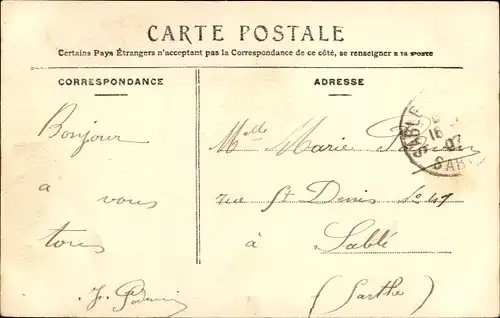 CARTE POSTALE
Certains Pays Étrangers n'acceptant pas la Correspondance de ce côté, se renseigner à la Poste
CORRESPONDANCE
ADRESSE
Bonjour
a vous
tous
Melle Marie
rue St Denis No 47
à Sablé
(Sarthe)
SABLÉ
07
SAR